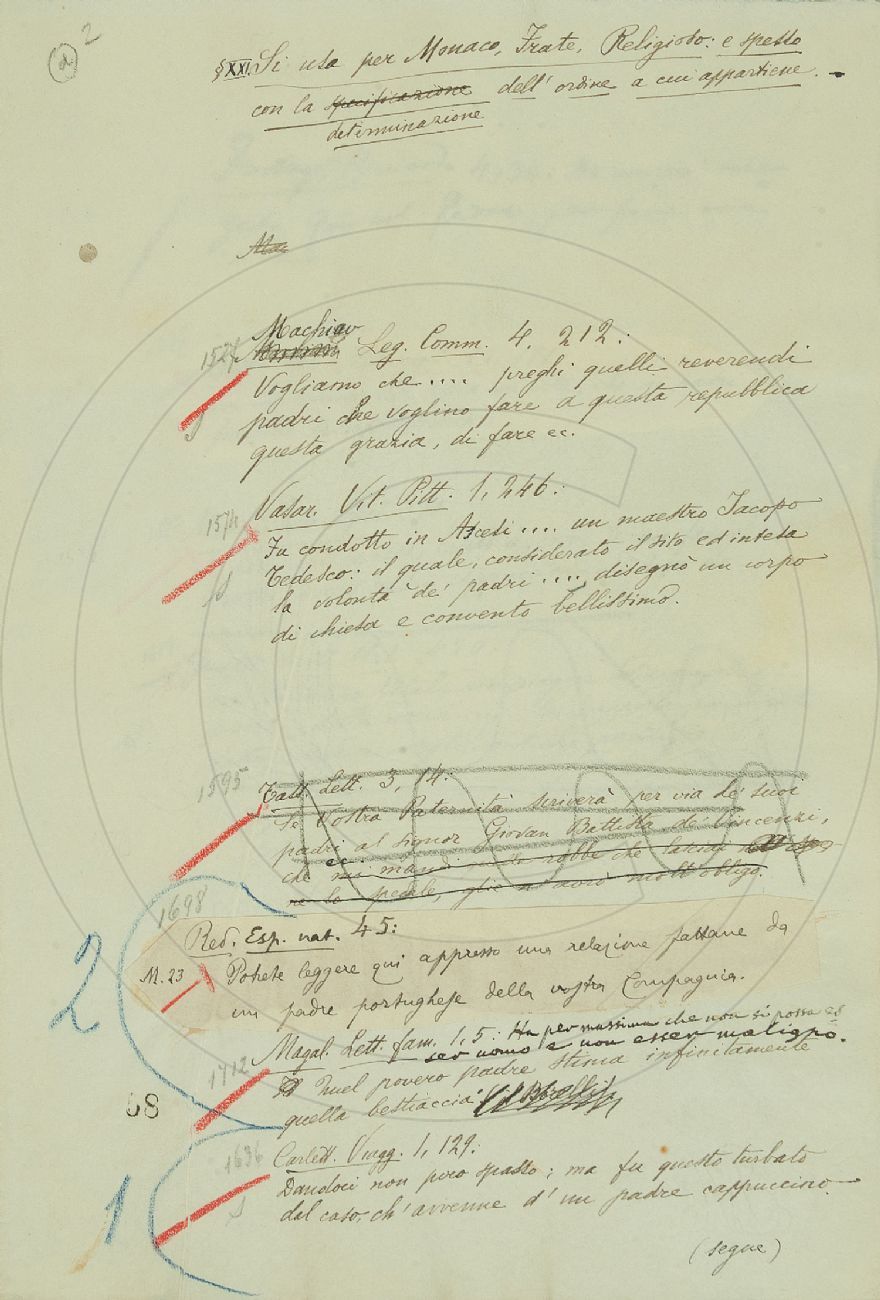 2
d
§ XXI. Si usa per Monaco, Frate, Religioso: e spesso
con la specificazione dell'ordine a cui appartiene. -
determinazione
Ma
Machiav
1527 Leg. Comm. 4, 212:
Vogliamo che .... preghi quelli reverendi
padri che voglino fare a questa repubblica
questa grazia, di fare ec.
Vasar. Vit. Pitt. 1, 246:
1574
Fu condotto in Ascesi .... un maestro Jacopo
Tedesco: il quale, considerato il sito ed intesa
la volontà de' padri ...., disegnò un corpo
di chiesa e convento bellissimo.
1595 Tass. Lett. 3, 14:
Se Vostra Paternità scriverà per via de' suoi
padri al signor Giovan Battista de' Vincenzi,
che mi mandi le robbe che lasciai
ec.
ne lo spedale, glie n'avrò molt'obligo.
1698
Red. Esp. nat. 45:
M. 23 Potete leggere qui appresso una relazione fattane da
un padre portughese della vostra Compagnia.
2
Magal. Lett. fam. 1, 5: Ha per massima che non si possa es
ser uomo e non esser maligno.
1712 Quel povero padre stima infinitamente
quella bestiaccia
68
1636 Carlett. Viagg. 1, 129:
Dandoci non poco spasso; ma fu questo turbato
dal caso, ch'avvenne d'un padre cappuccino
1
(segue)